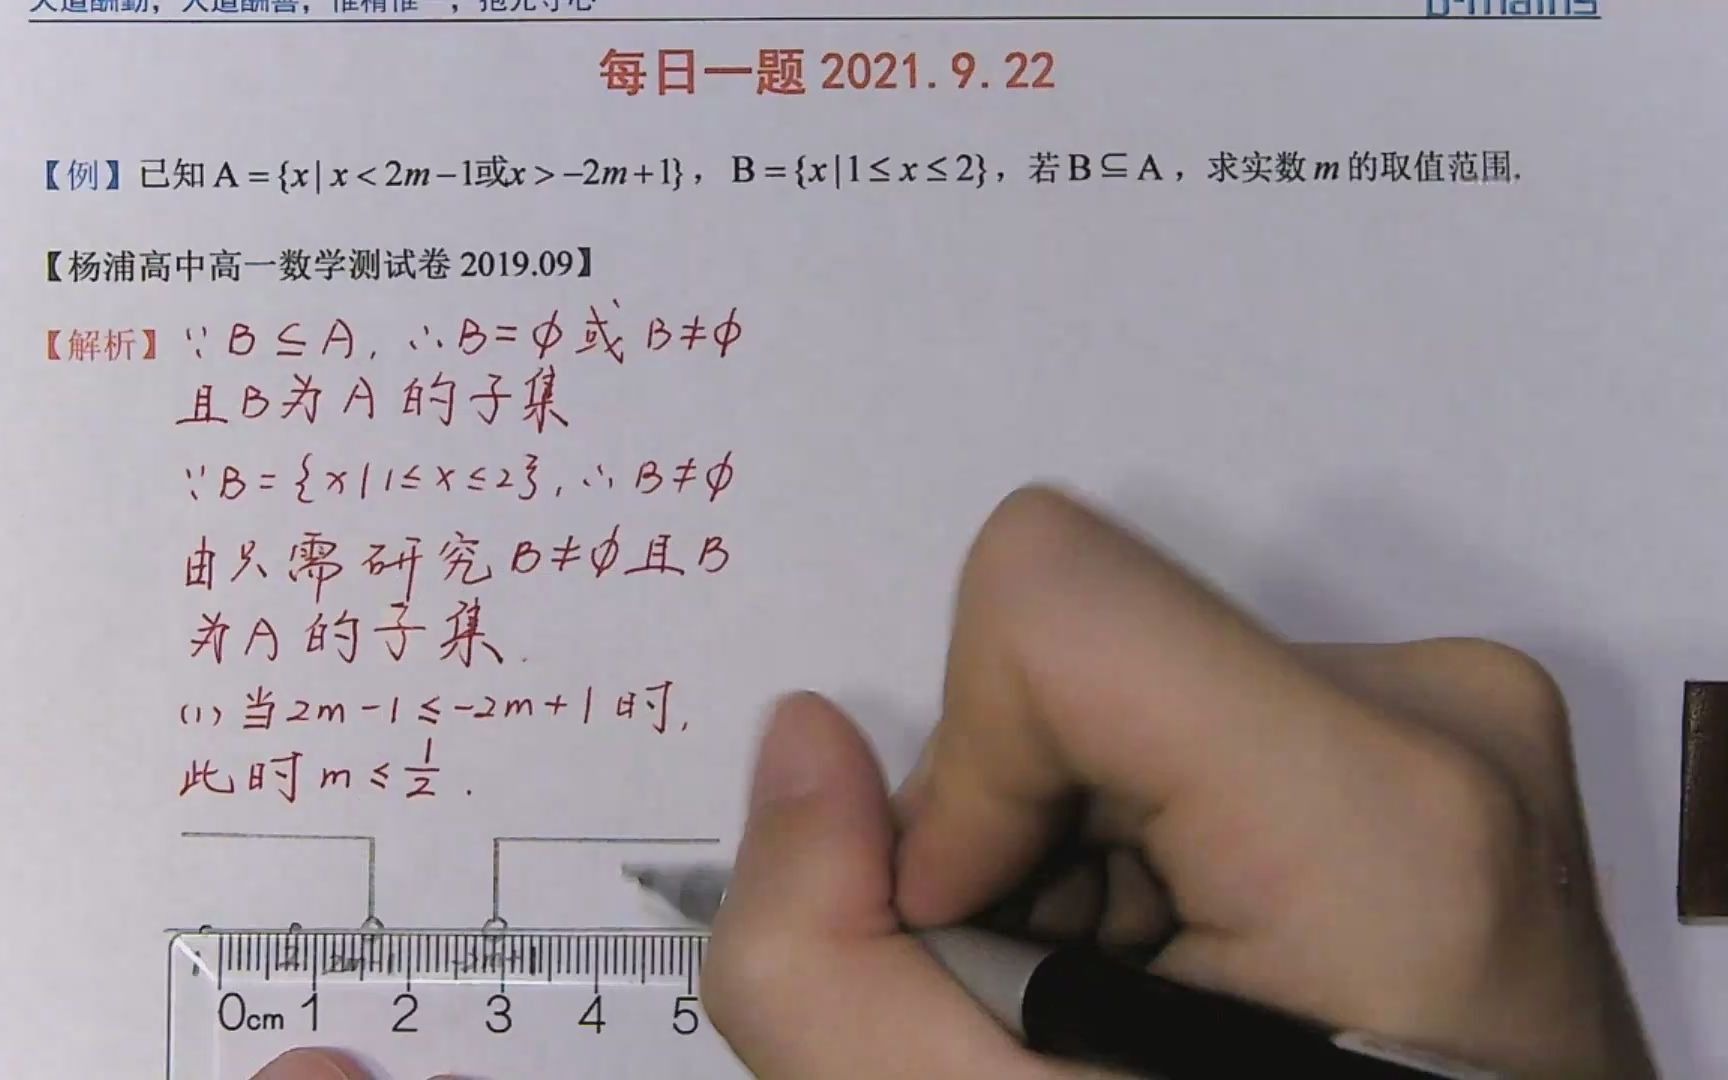 天道酬勤，人道酬善，惟精惟一，抱元守心
每日一题 2021.9.22
【例】已知 A = {x | x < 2m−1或x > −2m+1}，B = {x | 1 ≤ x ≤ 2}，若 B ⊆ A，求实数 m 的取值范围.
【杨浦高中高一数学测试卷 2019.09】
【解析】∵ B ⊆ A, ∴ B = ϕ 或 B ≠ ϕ
且 B 为 A 的子集
∵ B = {x | 1 ≤ x ≤ 2}, ∴ B ≠ ϕ
由只需研究 B ≠ ϕ 且 B
为 A 的子集.
(1) 当 2m − 1 ≤ −2m + 1 时,
此时 m ≤ 1/2 .
1 2 2m−1 −2m+1
0cm 1 2 3 4 5